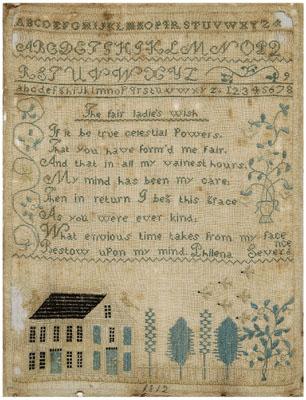 ABCDEFGHIJKLMNOPQRSTUVWXYZ&
ABCDEFGHIJKLMNOPQ
RSTUVWXYZ
abcdefghijklmnopqrstuvwxyz 12345678
9
The fair ladie's wish
If it be true celestial Powers.
That you have form'd me fair.
And that in all my vainest hours.
My mind has been my care:
Then in return I beg this grace
As you were ever kind:
What envious time takes from my face
Bestow upon my mind. Philena
1812